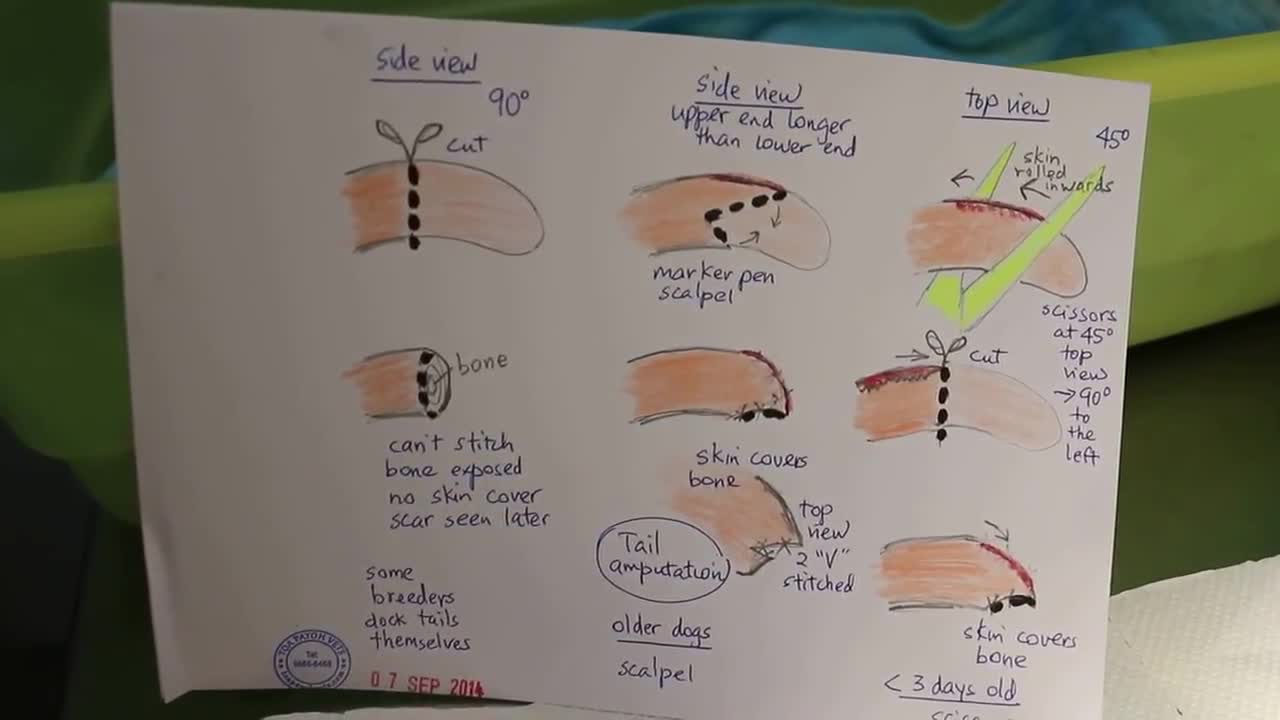 side view
90°
cut
bone
can't stitch
bone exposed
no skin cover
scar seen later
some
breeders
dock tails
themselves
TOA PAYOH VETS
Tel:
07 SEP 2014
side view
upper end longer
than lower end
marker pen
scalpel
skin covers
bone
top
view
2 "V"
stitched
Tail
amputation
older dogs
scalpel
top view
45°
skin
rolled
inwards
scissors
at 45°
top
view
→ 90°
to
the
left
cut
skin covers
bone
< 3 days old